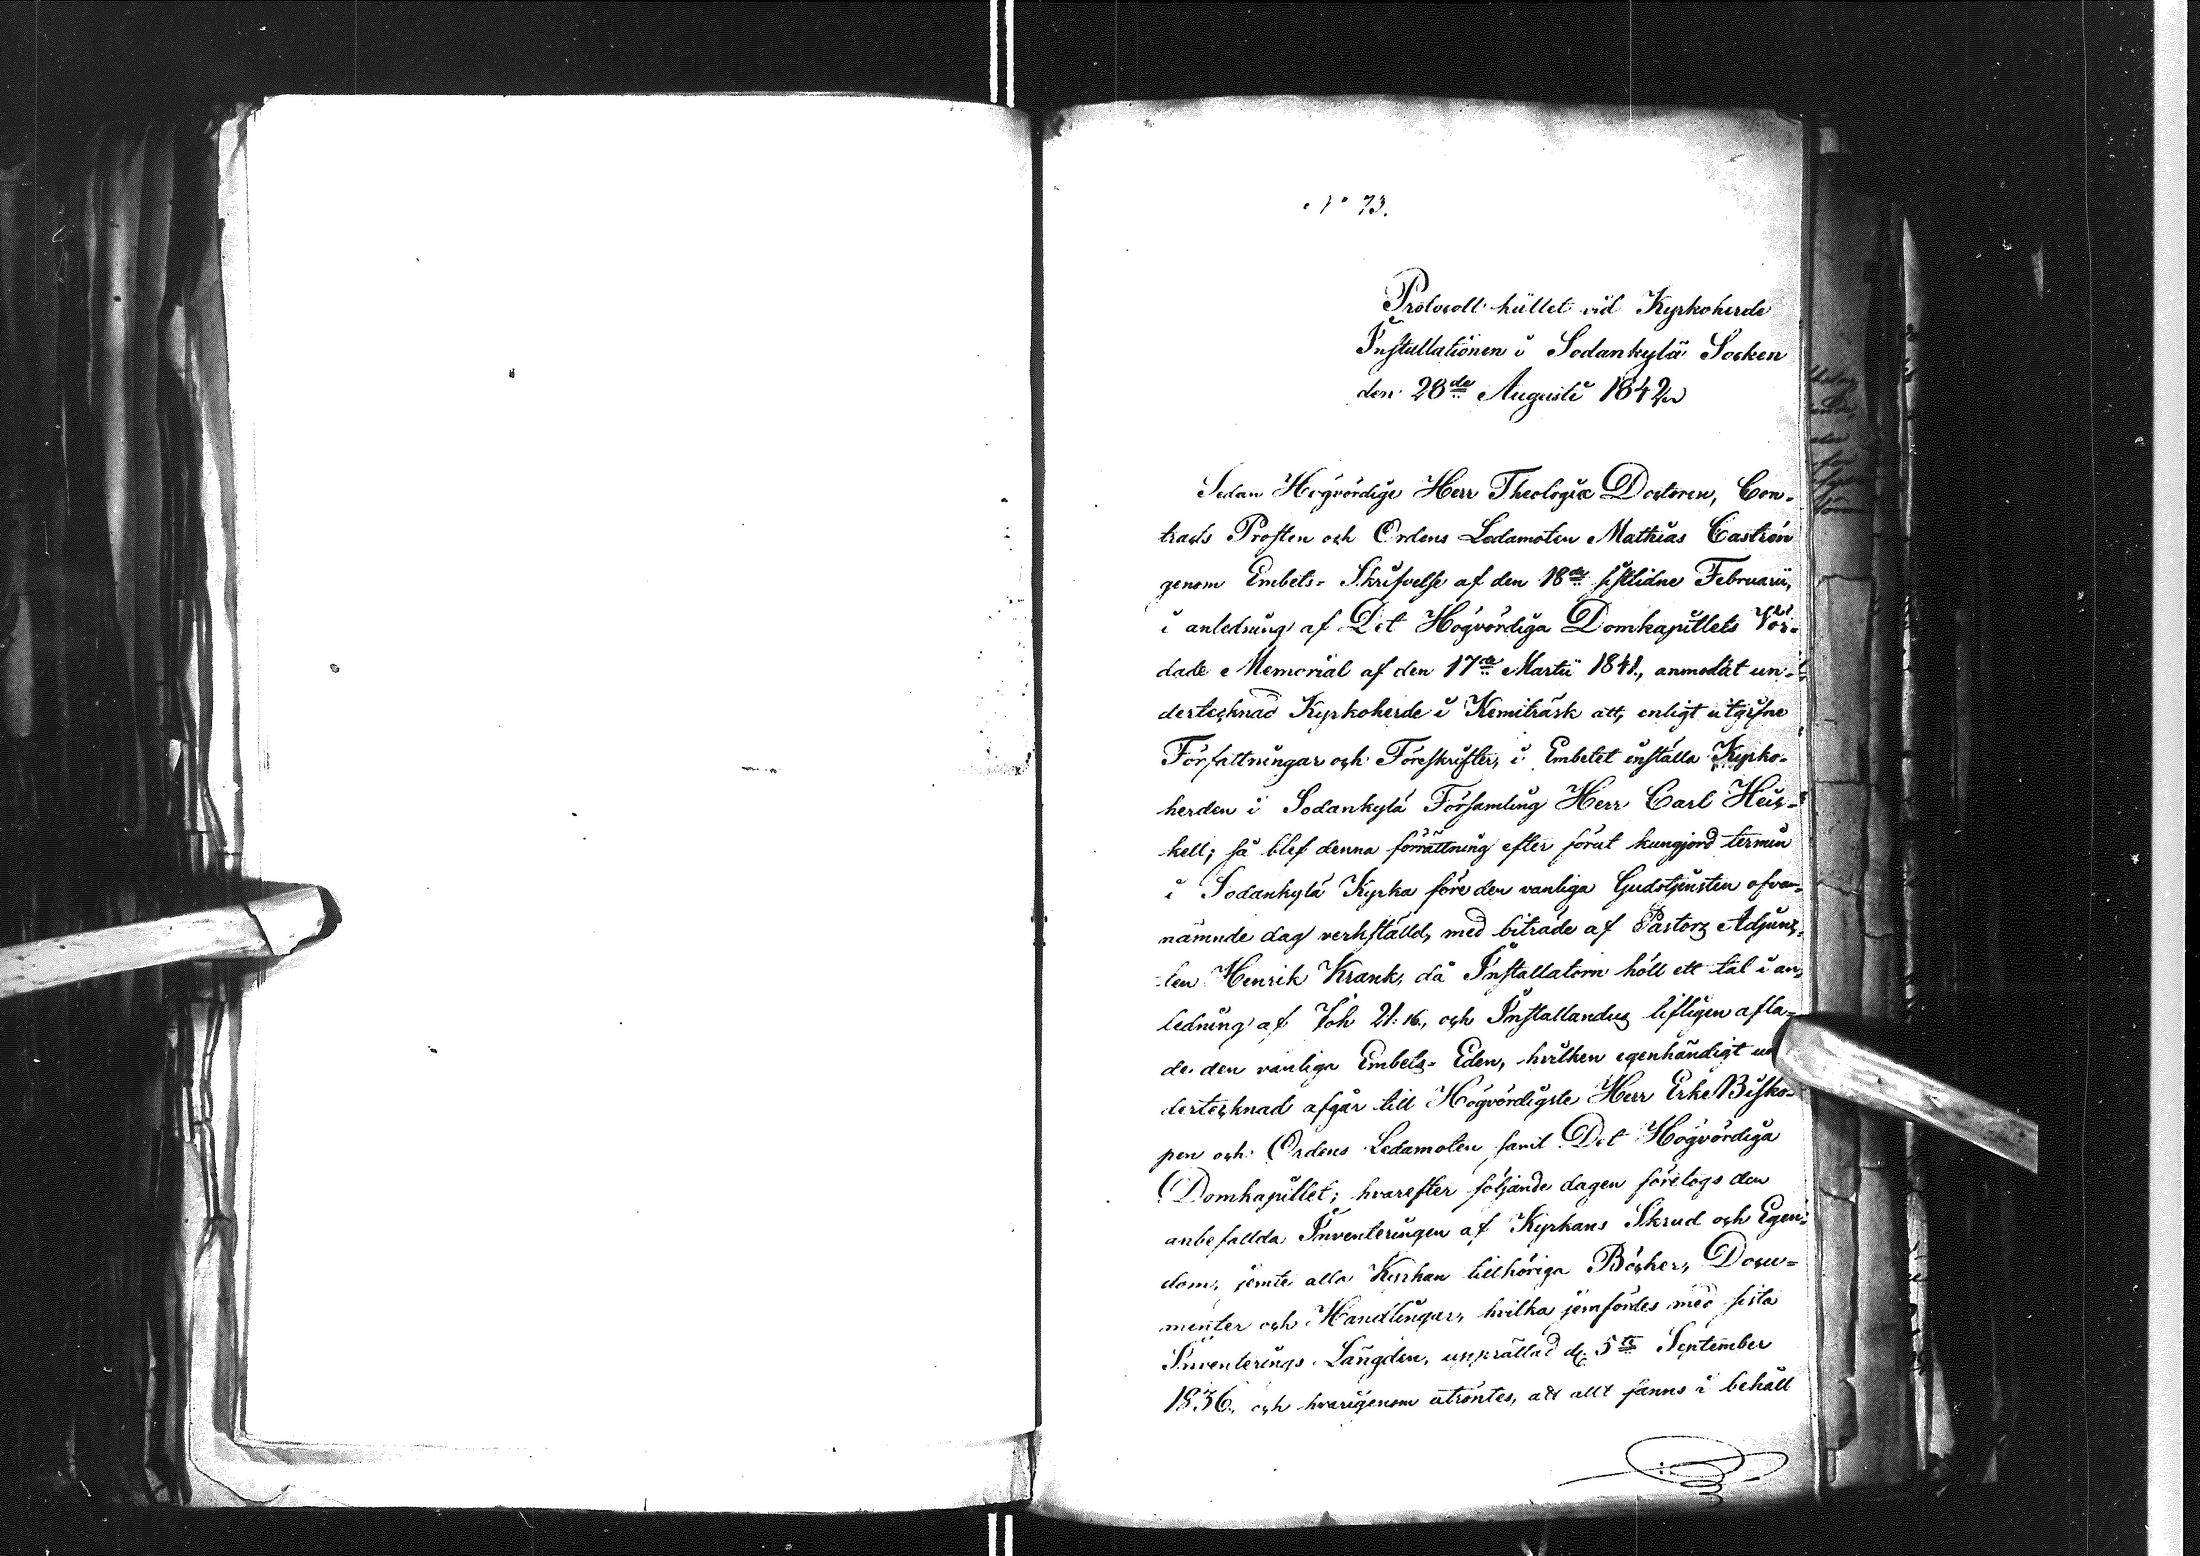 N° 73.
Protocoll hållet vid Kyrkoherde
Installationen i Sodankylä Socken
den 28de Augusti 1842
Sedan Högvördige Herr Theologiæ Doctoren, Con-
tracts Prosten och Ordens Ledamoten Mathias Castrén
genom Embets-Skrifvelse af den 18de sistlidne Februarii,
i anledning af Det Högvördiga Domkapitlets Vör-
dade Memorial af den 17de Martii 1841, anmodat un-
dertecknad Kyrkoherde i Kemiträsk att, enligt utgifne
Författningar och Föreskrifter, i Embetet inställa Kyrko-
herden i Sodankylä Församling Herr Carl Heic-
kell; så blef denna förrättning efter förut kungjord termin
i Sodankylä Kyrka före den vanliga Gudstjensten ofvan-
nämnde dag verkställd, med biträde af Pastors Adjunc-
ten Henrik Krank, då Installatorn höll ett tal i an-
ledning af Joh 21:16, och Installandus lifligen afla-
de den vanliga Embets-Eden, hvilken egenhändigt un
dertecknad afgår till Högvördigste Herr ErkeBisko-
pen och Ordens Ledamoten samt Det Högvördiga
Domkapitlet; hvarefter följande dagen företogs den
anbefallda Inventeringen af Kyrkans Skrud och Egen-
dom, jemte alla Kyrkan tillhöriga Böcker, Docu-
menter och Handlingar, hvilka jemfördes med sista
Inventerings-Längden, upprättad d. 5te September
1836, och hvarigenom utröntes, att allt fanns i behåll